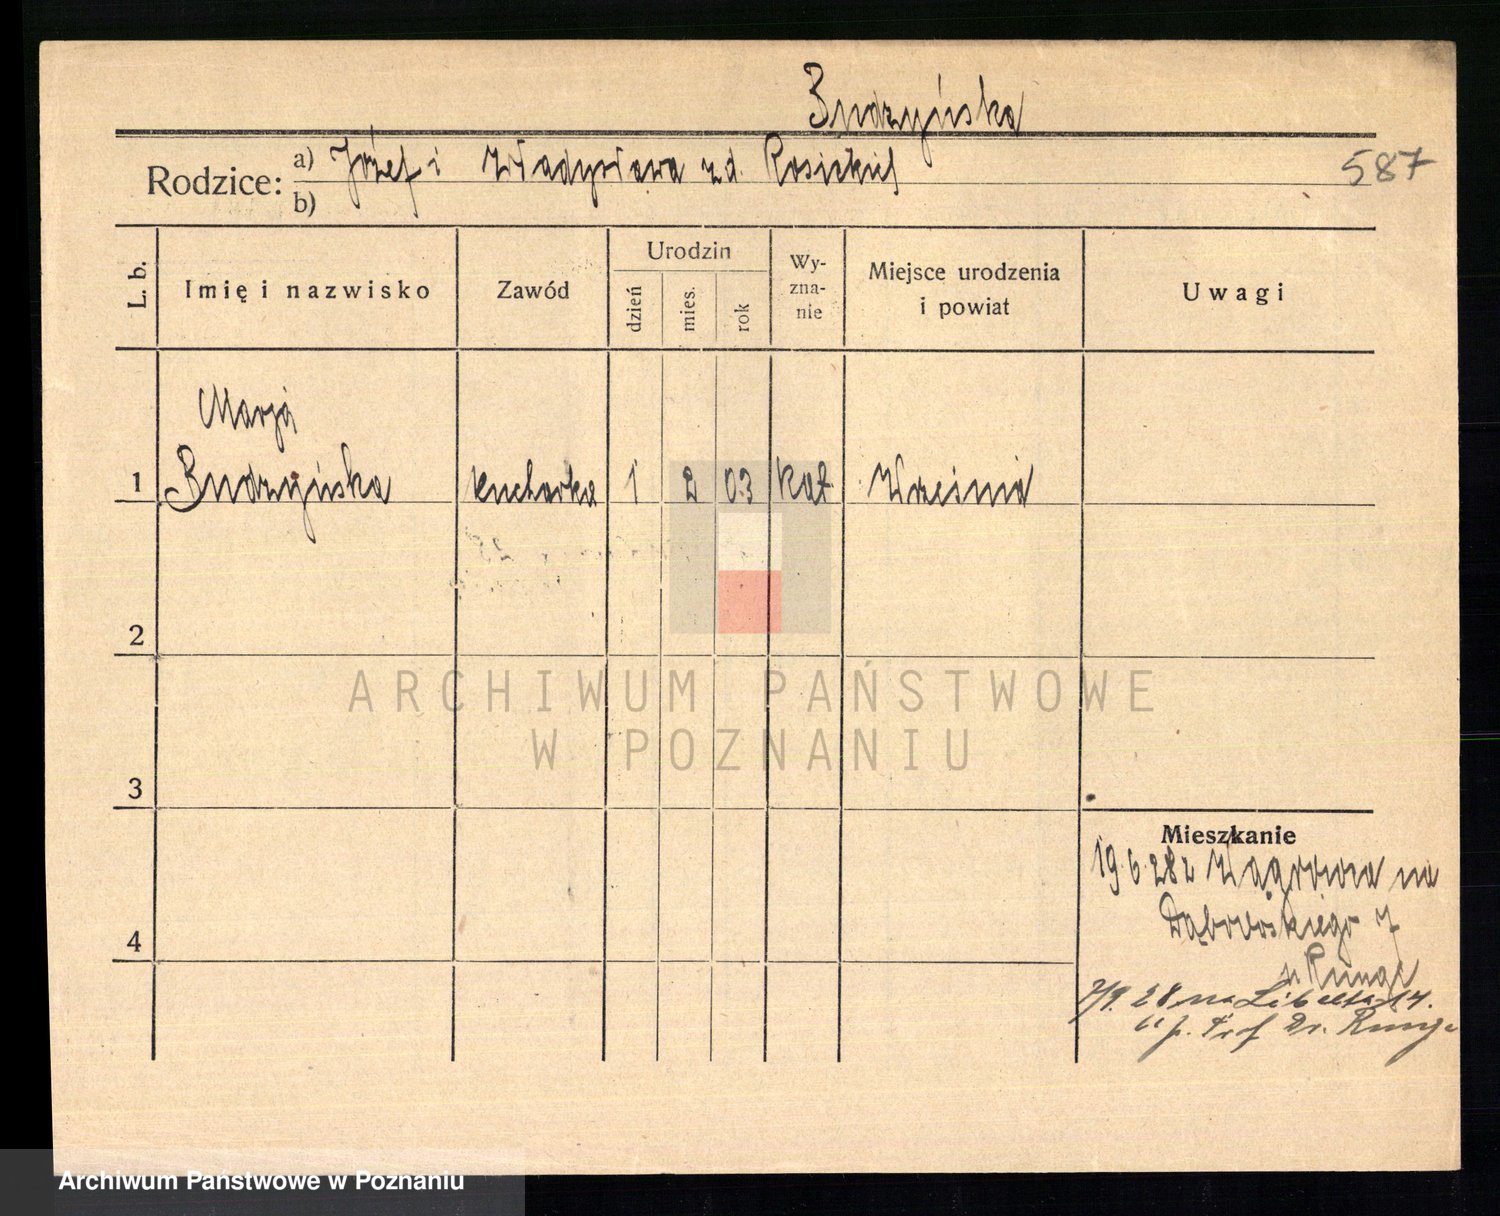 Budrzyńska
587
Rodzice:
a) Józef i Władysława zd.
b)
L. b.
Imię i nazwisko
Zawód
Urodzin
dzień
mies.
rok
Wy-
zna-
nie
Miejsce urodzenia
i powiat
Uwagi
Marja
1 Budrzyńska kucharka 1 2 03 kat. Września
2
3
4
Mieszkanie
19.6.28 z Wągrowca na
Dąbrowskiego 7
u Runge
7/9. 28 na Libelta 14.
u p. Prof Dr. Runge
ARCHIWUM PAŃSTWOWE
W POZNANIU
Archiwum Państwowe w Poznaniu